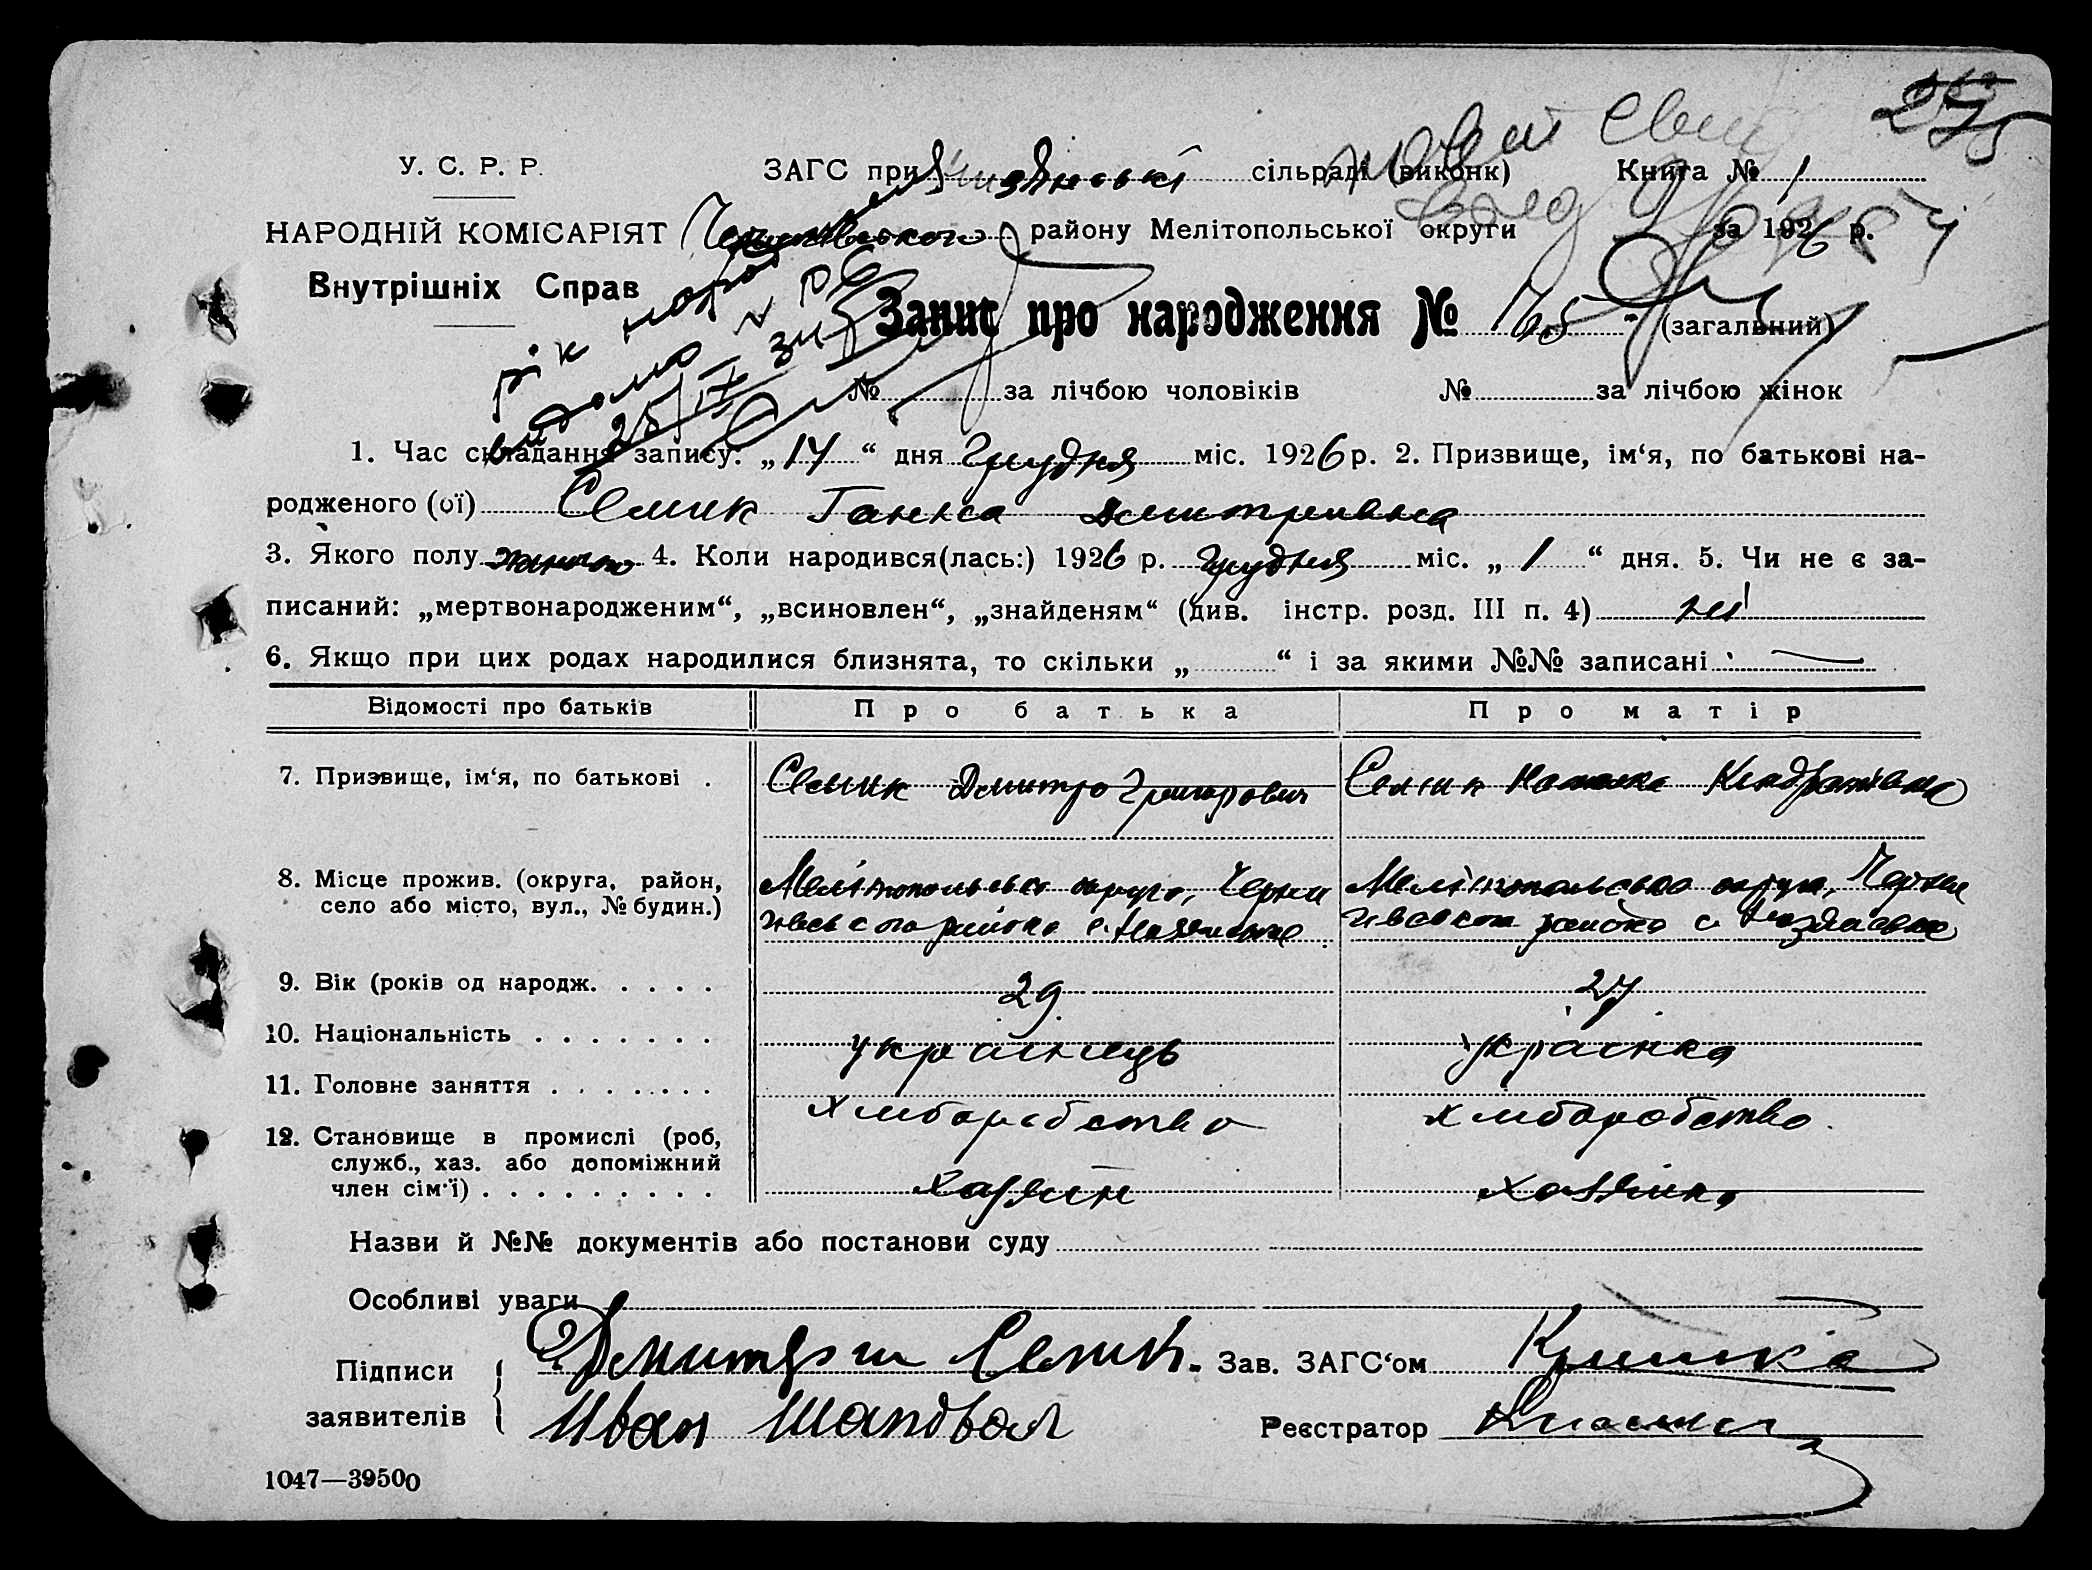 275
У. С. Р. Р. ЗАГС при сільраді (виконк) Книга № 1
НАРОДНІЙ КОМІСАРІЯТ району Мелітопольської округи за 1926 р.
Внутрішніх Справ
Запис про народження № 165 (загальний)
№ за лічбою чоловіків № за лічбою жінок
1. Час складання запису: „14“ дня Грудня міс. 1926 р. 2. Призвище, ім‘я, по батькові на-
родженого (ої) Семик Ганна Дмитривна
3. Якого полу жіночого 4. Коли народився(лась:) 1926 р. грудня міс. „1“ дня. 5. Чи не є за-
писаний: „мертвонародженим“, „всиновлен“, „знайденям“ (див. інстр. розд. III п. 4) ні
6. Якщо при цих родах народилися близнята, то скільки „ “ і за якими №№ записані —
Відомості про батьків Про батька Про матір
7. Призвище, ім‘я, по батькові . Семик Дмитро Григорович Семик Кіндратівна
8. Місце прожив. (округа, район, Мелітопольська округа, Черни Мелітопольська округа, Черни
село або місто, вул., № будин.) гівського району с. гівського району с.
9. Вік (років од народж. . . . . 29 27
10. Національність . . . . . . . українець українка
11. Головне заняття . . . . . . . хліборобство хліборобство
12. Становище в промислі (роб,
служб., хаз. або допоміжний
член сім‘ї) . . . . . . . . . хазяїн хазяйка
Назви й №№ документів або постанови суду
Особливі уваги
Підписи Семик. Зав. ЗАГС‘ом
заявителів Иван Шаповал Реєстратор
1047—39500